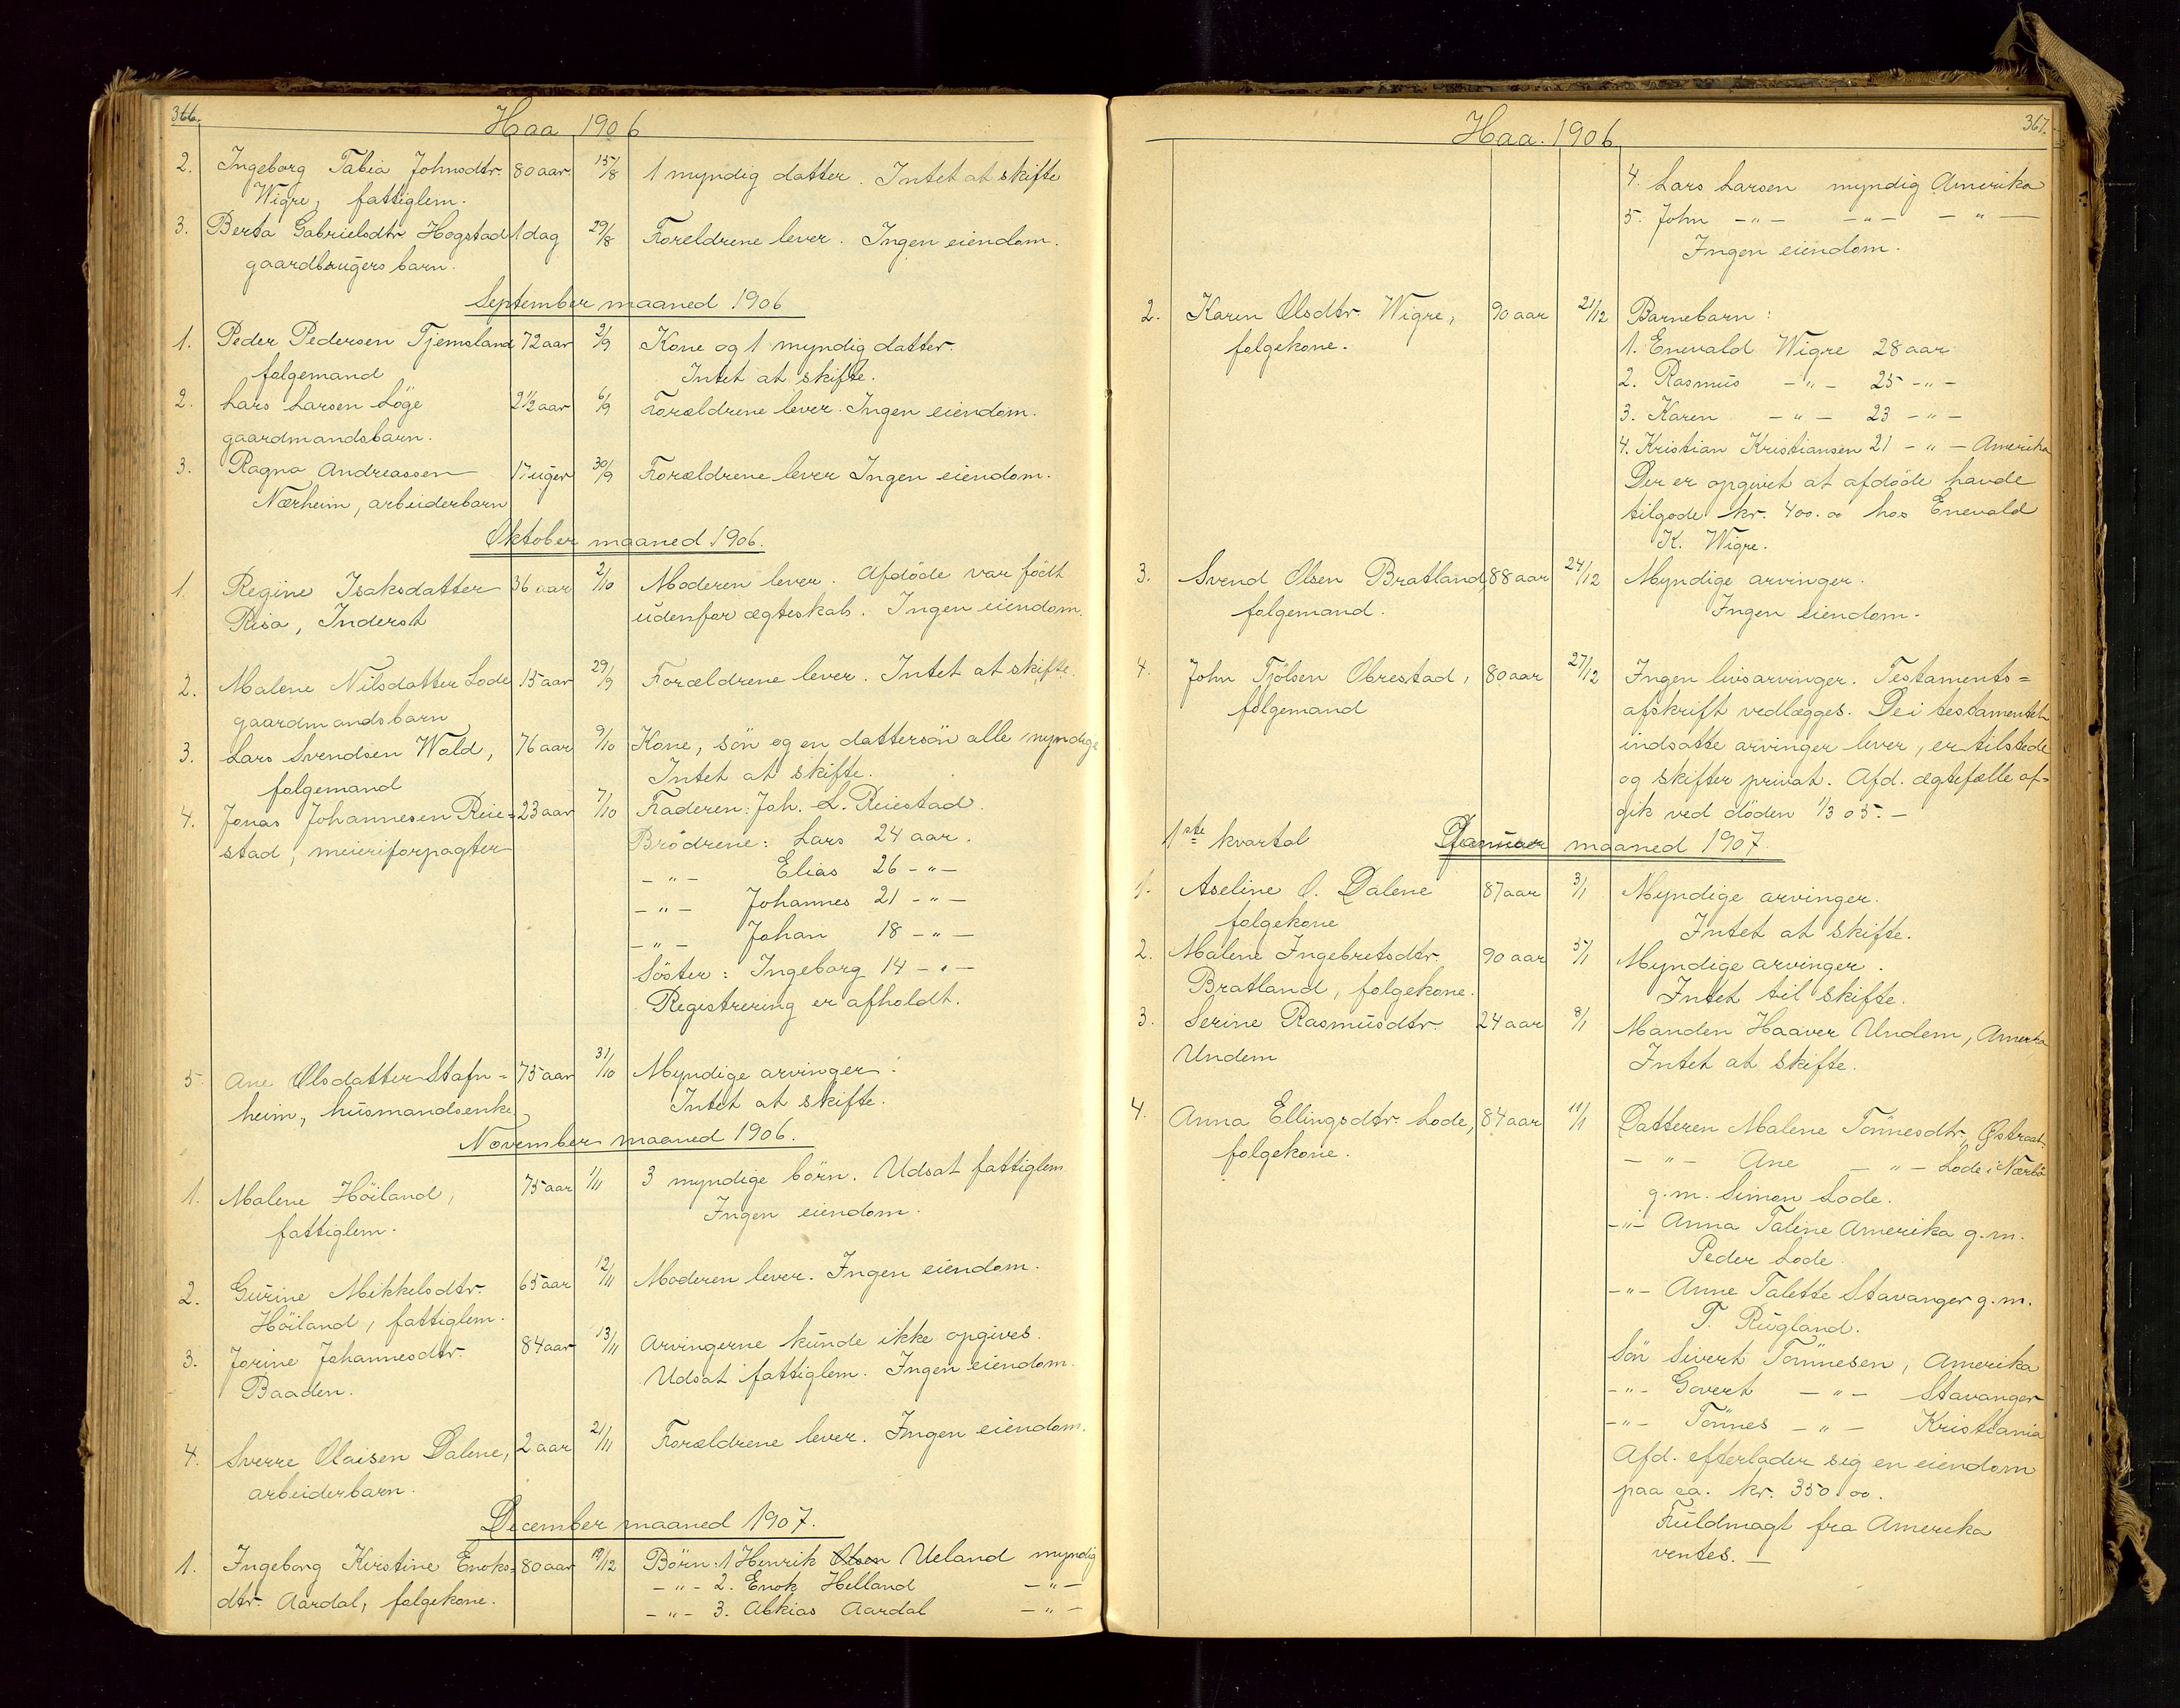 366.
Haa 1906
2. Ingeborg Tabia Johnsdtr. 80 aar 15/8 1 myndig datter. Intet at skifte
Wigre, fattiglem.
3. Berta Gabrielsdtr Hogstad 1 dag 29/8 Forældrene lever. Ingen eiendom.
gaardbrugers barn.
September maaned 1906
1. Peder Pedersen Tjemsland 72 aar 2/9 Kone og 1 myndig datter.
folgemand Intet at skifte.
2. Lars Larsen Löge 2 1/2 aar 6/9 Forældrene lever. Ingen eiendom.
gaardmandsbarn.
3. Ragna Andreassen 17 uger 30/9 Forældrene lever Ingen eiendom.
Nærheim, arbeiderbarn
Oktober maaned 1906.
1. Regine Isaksdatter 36 aar 2/10 Moderen lever. Afdöde var födt
Risa, Inderst udenfor ægteskab. Ingen eiendom.
2. Malene Nilsdatter Lode 15 aar 29/9 Forældrene lever. Intet at skifte.
gaardmandsbarn
3. Lars Svendsen Wold, 76 aar 9/10 Kone, sön og en dattersön alle myndige
folgemand Intet at skifte.
4. Jonas Johannesen Reie= 23 aar 7/10 Faderen: Joh. L. Reiestad.
stad, meieriforpagter Brödrene: Lars 24 aar.
-"- Elias 26 -"-
-"- Johannes 21 -"-
-"- Johan 18 -"-
Söster: Ingeborg 14 -"-
Registrering er afholdt.
5 Ane Olsdatter Stafn= 75 aar 31/10 Myndige arvinger.
heim, husmandsenke Intet at skifte.
November maaned 1906.
1. Malene Höiland, 75 aar 1/11 3 myndige börn. Udsat fattiglem
fattiglem. Ingen eiendom.
2. Gurine Mikkelsdtr. 65 aar 12/11 Moderen lever. Ingen eiendom.
Höiland, fattiglem.
3. Jorine Johannesdtr. 84 aar 13/11 Arvingerne kunde ikke opgives.
Baaden. Udsat fattiglem. Ingen eiendom.
4. Sverre Olaisen Dalene, 2 aar 21/11 Forældrene lever. Ingen eiendom.
arbeiderbarn.
December maaned 1907.
1. Ingeborg Kirstine Enoks= 80 aar 19/12 Börn: 1 Henrik Olsen Ueland myndig
dtr. Aardal, folgekone. -"- 2. Enok Helland -"-
-"- 3. Abkias Aardal -"-
367.
Haa. 1906
4. Lars Larsen myndig Amerika
5. John -"- -"- -"-
Ingen eiendom.
2. Karen Olsdtr. Wigre, 90 aar 21/12 Barnebarn:
folgekone. 1. Enevald Wigre 28 aar
2. Rasmus -"- 25 -"-
3. Karen -"- 23 -"-
4. Kristian Kristiansen 21 -"- Amerika
Der er opgivet at afdöde havde
tilgode kr. 400.00 hos Enevald
K. Wigre.
3. Svend Olsen Bratland, 88 aar 24/12 Myndige arvinger.
folgemand. Ingen eiendom.
4. John Tjölsen Obrestad, 80 aar 27/12 Ingen livsarvinger. Testaments=
folgemand afskrift vedlægges. De i testamentet
indsatte arvinger lever, er tilstede
og skifter privat. Afd. ægtefælle af=
gik ved döden 1/3 05. -
1ste kvartal Januar maaned 1907.
1. Aseline O. Dalene 87 aar 3/1 Myndige arvinger.
folgekone Intet at skifte.
2. Malene Ingebretsdtr. 90 aar 5/1 Myndige arvinger.
Bratland, folgekone. Intet til skifte.
3. Serine Rasmusdtr. 24 aar 8/1 Manden Haaver Undem, Amerika
Undem Intet at skifte.
4. Anna Ellingsdtr. Lode, 84 aar 11/1 Datteren Malene Tönnesdtr, Østraat
folgekone. -"- Ane -"- Lode i Nærbö
g.m. Simon Lode.
-"- Anna Taline Amerika g.m.
Peder Lode.
-"- Anne Talette Stavanger g.m.
T. Rugland.
Sön Sivert Tönnesen, Amerika
-"- Govert -"- Stavanger
-"- Tönnes -"- Kristiania
Afd. efterlader sig en eiendom
paa ca. kr. 350.00.
Fuldmagt fra Amerika
ventes. -